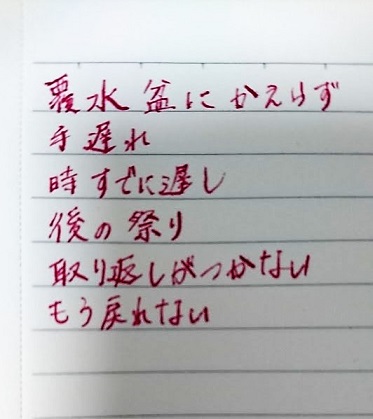 覆水盆にかえらず
手遅れ
時すでに遅し
後の祭り
取り返しがつかない
もう戻れない